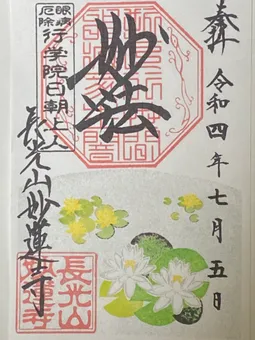 奉拝 令和四年七月五日
妙法
眼病
厄除
行学院日朝上人
長光山妙蓮寺
長光山
妙蓮寺